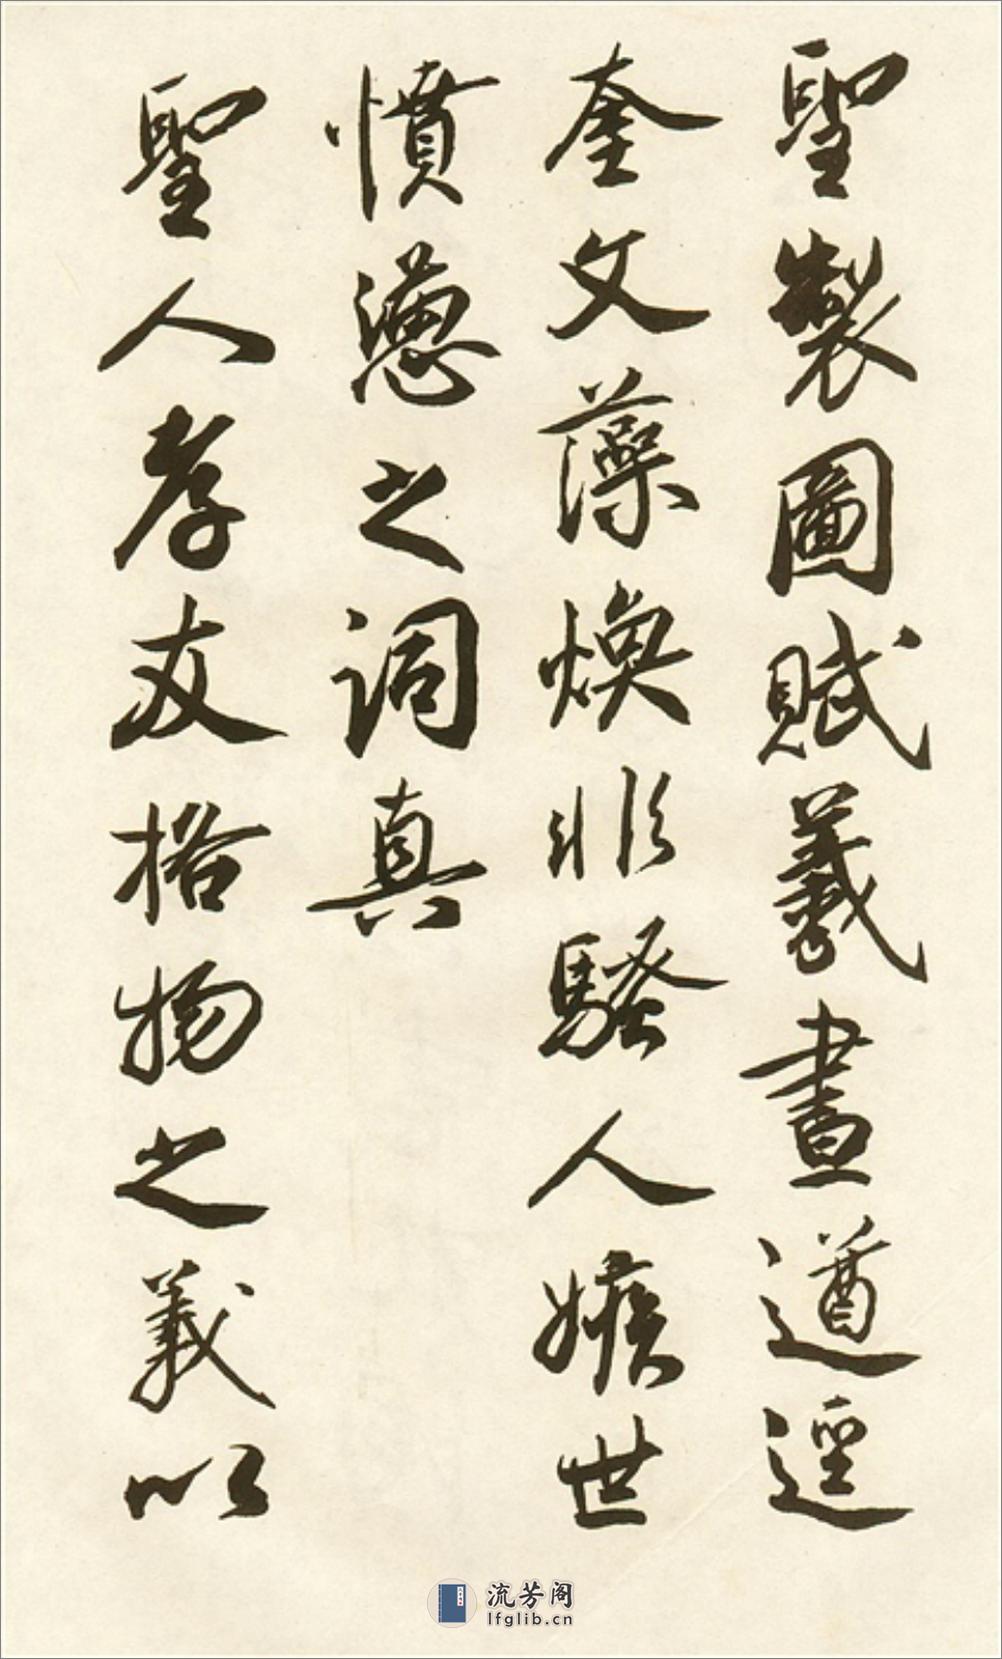 聖製圖賦羲畫遒逕
奎文藻煥非騷人嫉世
憤懣之詞真
聖人孝友格物之義以
流芳阁
lfglib.cn